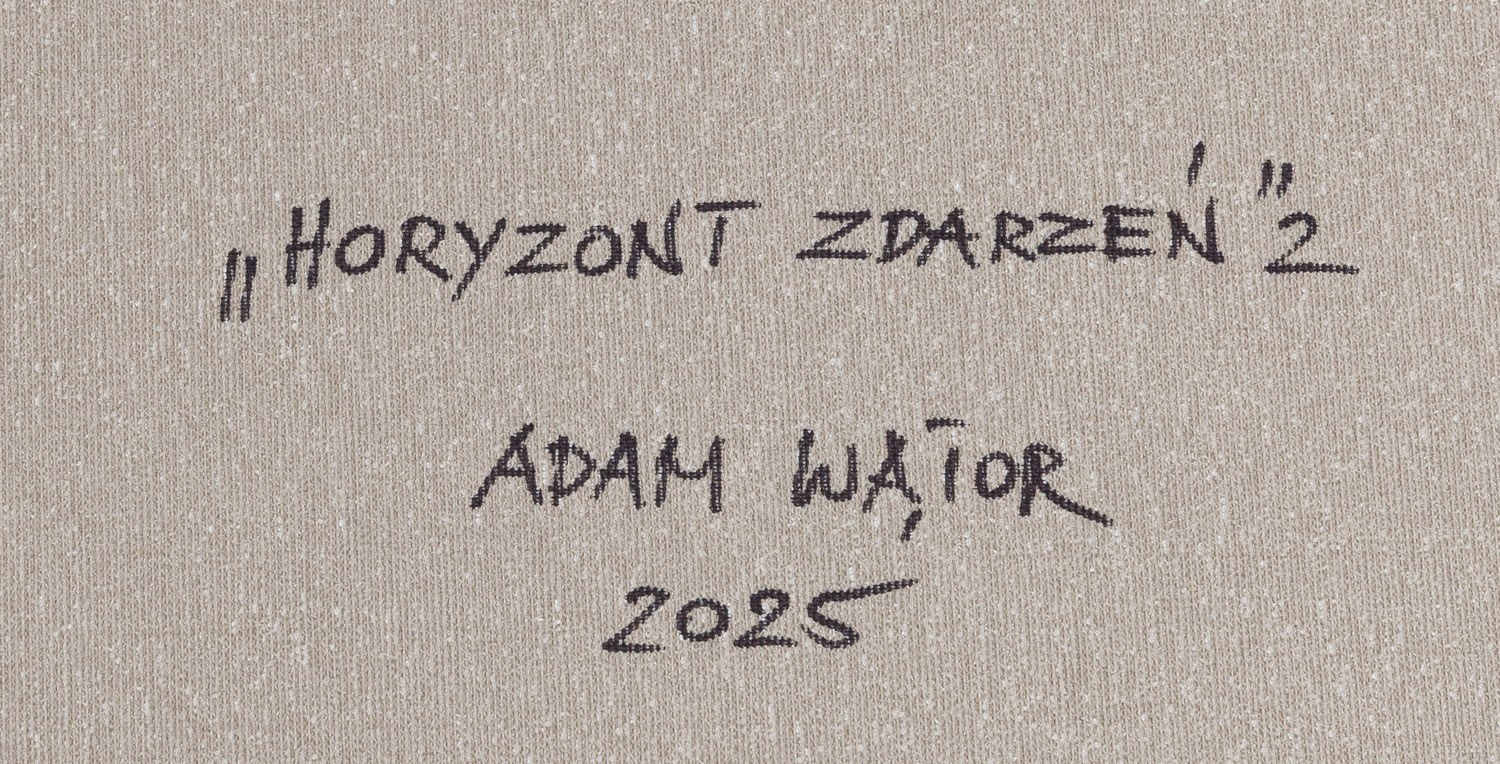 „HORYZONT ZDARZEŃ" 2
ADAM WĄTOR
2025